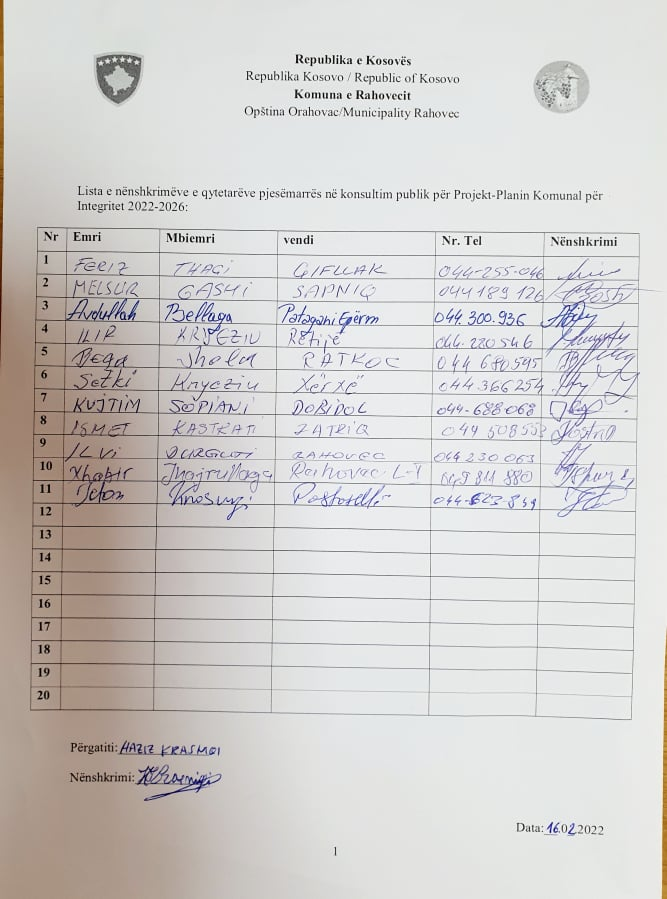 Republika e Kosovës
Republika Kosovo / Republic of Kosovo
Komuna e Rahovecit
Opština Orahovac/Municipality Rahovec
Lista e nënshkrimëve e qytetarëve pjesëmarrës në konsultim publik për Projekt-Planin Komunal për
Integritet 2022-2026:
Nr Emri Mbiemri vendi Nr. Tel Nënshkrimi
1 FERIZ THAGI GIFLLAK 044-255-046
2 MELSUR GASHI SAPNIQ 044 189 126
3 Avdullah Bellaga Pataqani Epërm 044.300.936
4 ILIR KRYEZIU Retijë 044-220 546
5 RATKOC 044 680595
6 Kryeziu Xërxë 044.366254
7 KUJTIM SOPIANI DOBIDOL 044-688068
8 ISMET KASTRATI ZATRIQ 044 508553
9 ILVI DURGUTI RAHOVEC 044 230 063
10 Xhafir Rahovac L-1 049 811 880
11 Jeton 044-623-849
12
13
14
15
16
17
18
19
20
Përgatiti: HAZIZ KRASMQI
Nënshkrimi:
Data: 16.02.2022
1